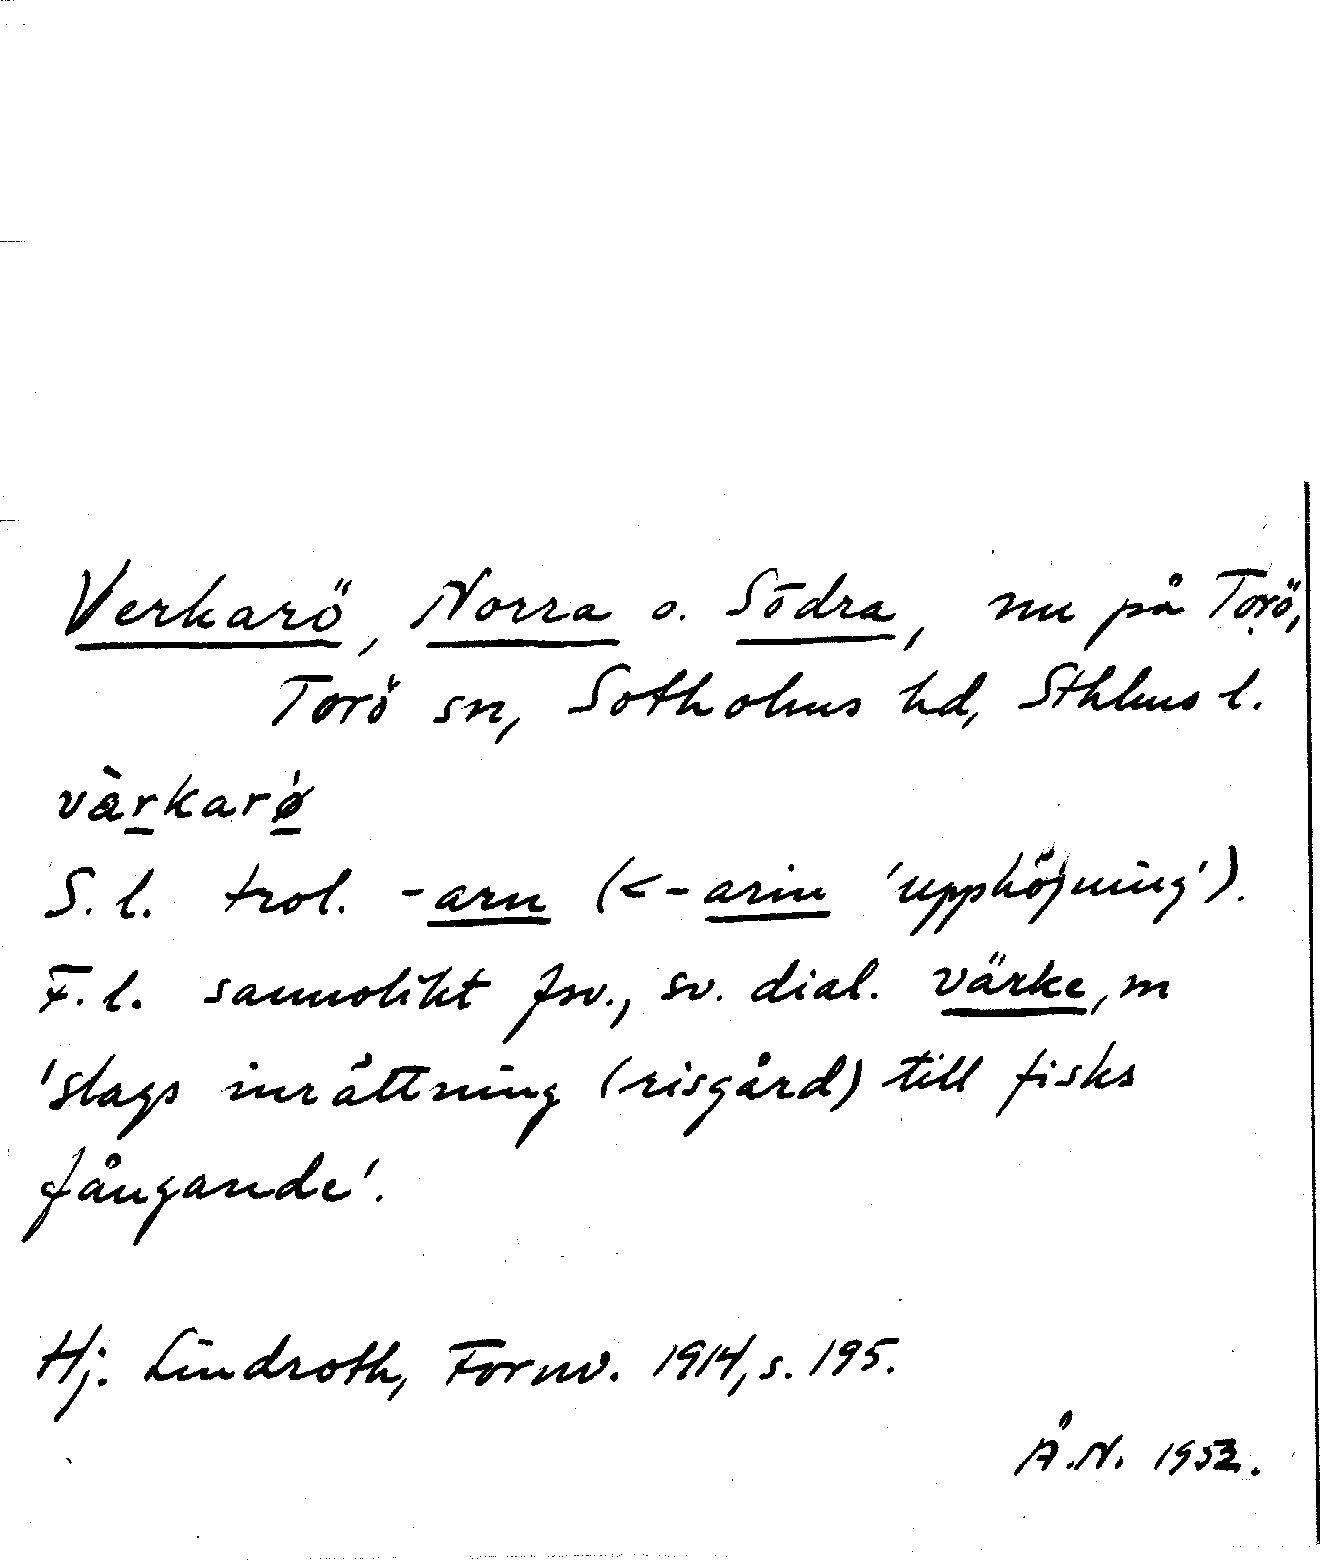 Verkarö, Norra o. Södra, nu på Torö,
Torö sn, Sotholms hd, Sthlms l.
và̀rkarǿ
S. l. trol. -arn (<-arin 'upphöjning').
F. l. sannolikt fsv., sv. dial. värke, m
'slags inrättning (risgård) till fisks
fångande'.
Hj. Lindroth, Fornv. 1914, s. 195.
Å.N. 1953.